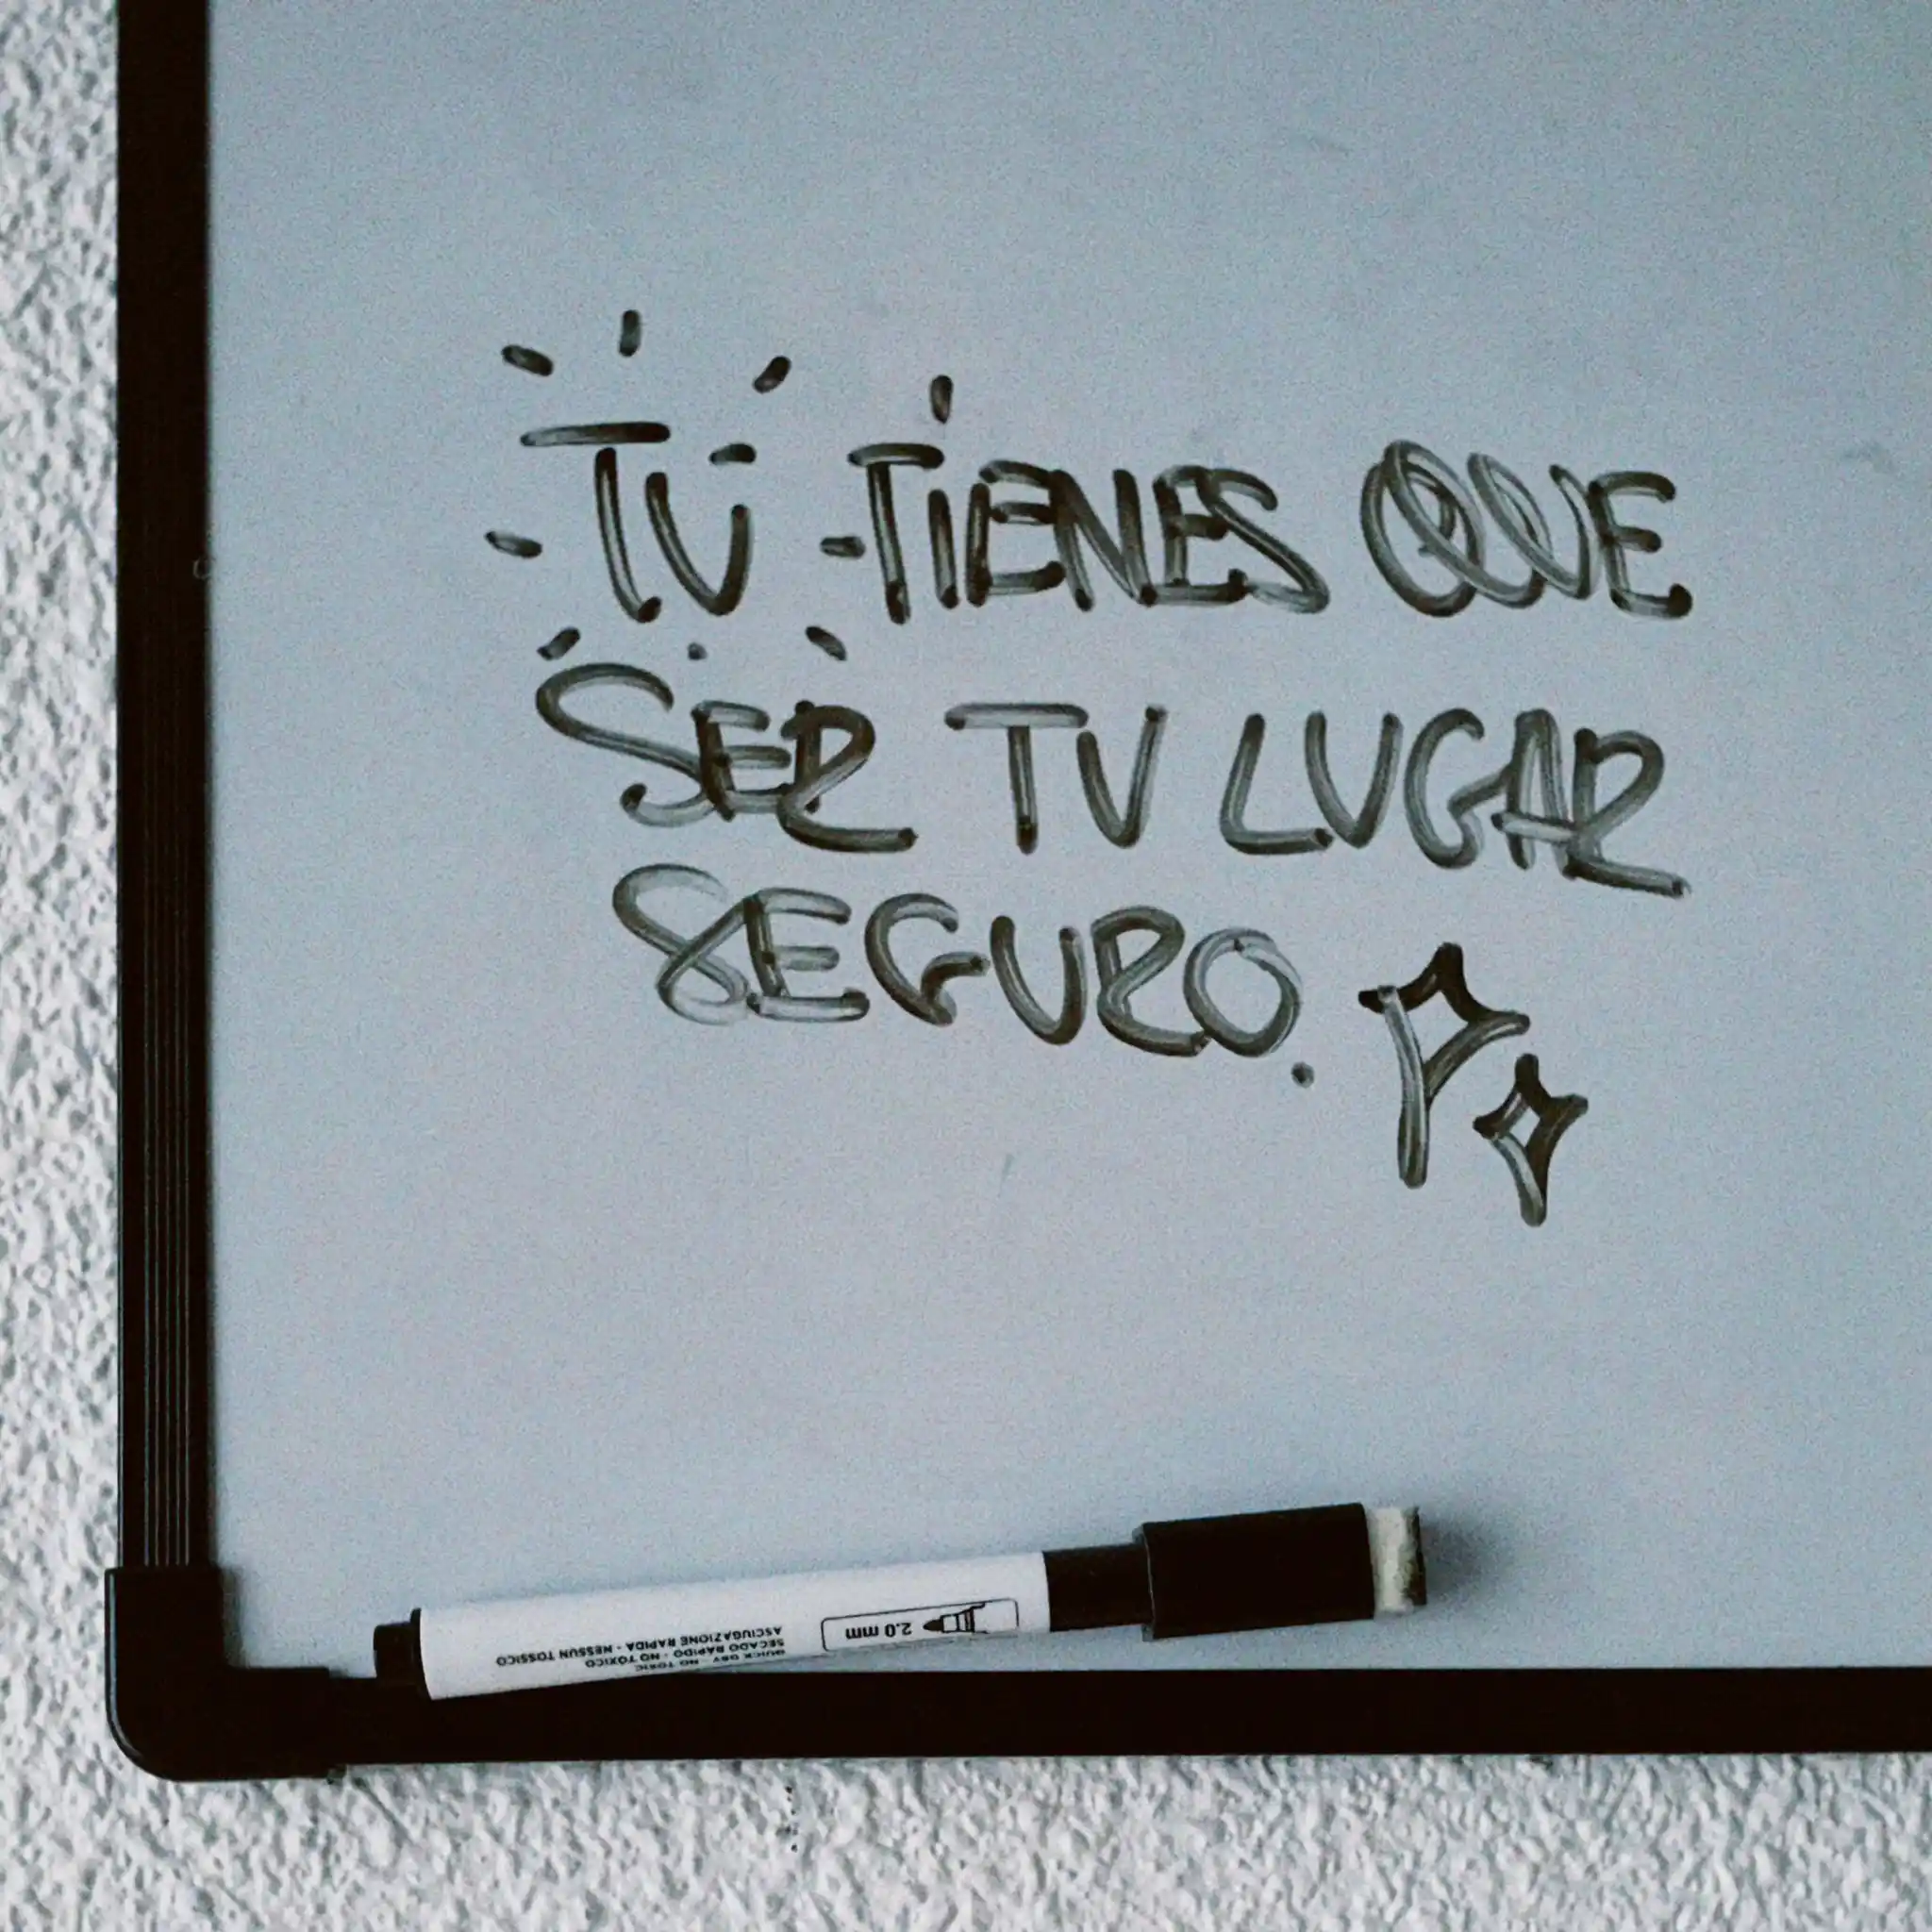 TÚ TIENES QUE
SER TU LUGAR
SEGURO.
2.0 mm
QUICK DRY - NO TOXIC
SECADO RAPIDO - NO TÓXICO
ASCIUGAZIONE RAPIDA - NESSUN TOSSICO